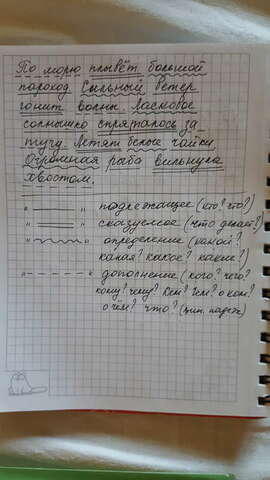 По морю плывёт большой
пароход. Сильный ветер
гонит волны. Ласковое
солнышко спряталось за
тучу. Летят белые чайки.
Огромная рыба вильнула
хвостом.
" " подлежащее (кто? что?)
" " сказуемое (что делает?)
" " определение (какой?
какая? какое? какие?)
" " дополнение (кого? чего?
кому? чему? кем? чем? о ком?
о чём? что? (вин. падеж)